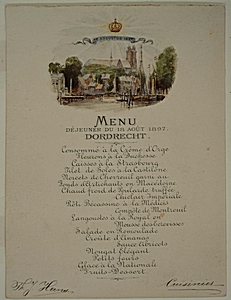 MENU
DÉJEUNER DU 18 AOÛT 1897.
DORDRECHT.
Consommé à la Crême d'Orge
Fleurons à la Duchesse
Caisses à la Strasbourg
Filet de Soles à la Castillone
Noisets de Chevreuil garni au
Fonds d'Artichauts en Macédoine
Chaud froid de Poularde truffée
Chalart Impériale
Rôti Bécassine à la Médicis
Compôte de Montreuil
Langoustes à la Royal en
Mousse des écrevisses
Salade en Remoulade
Croûte d'Ananas
Sauce Abricots
Nougat Elégant
Petits fours
Glace à la Nationale
Fruits-Dessert
Cuisinier